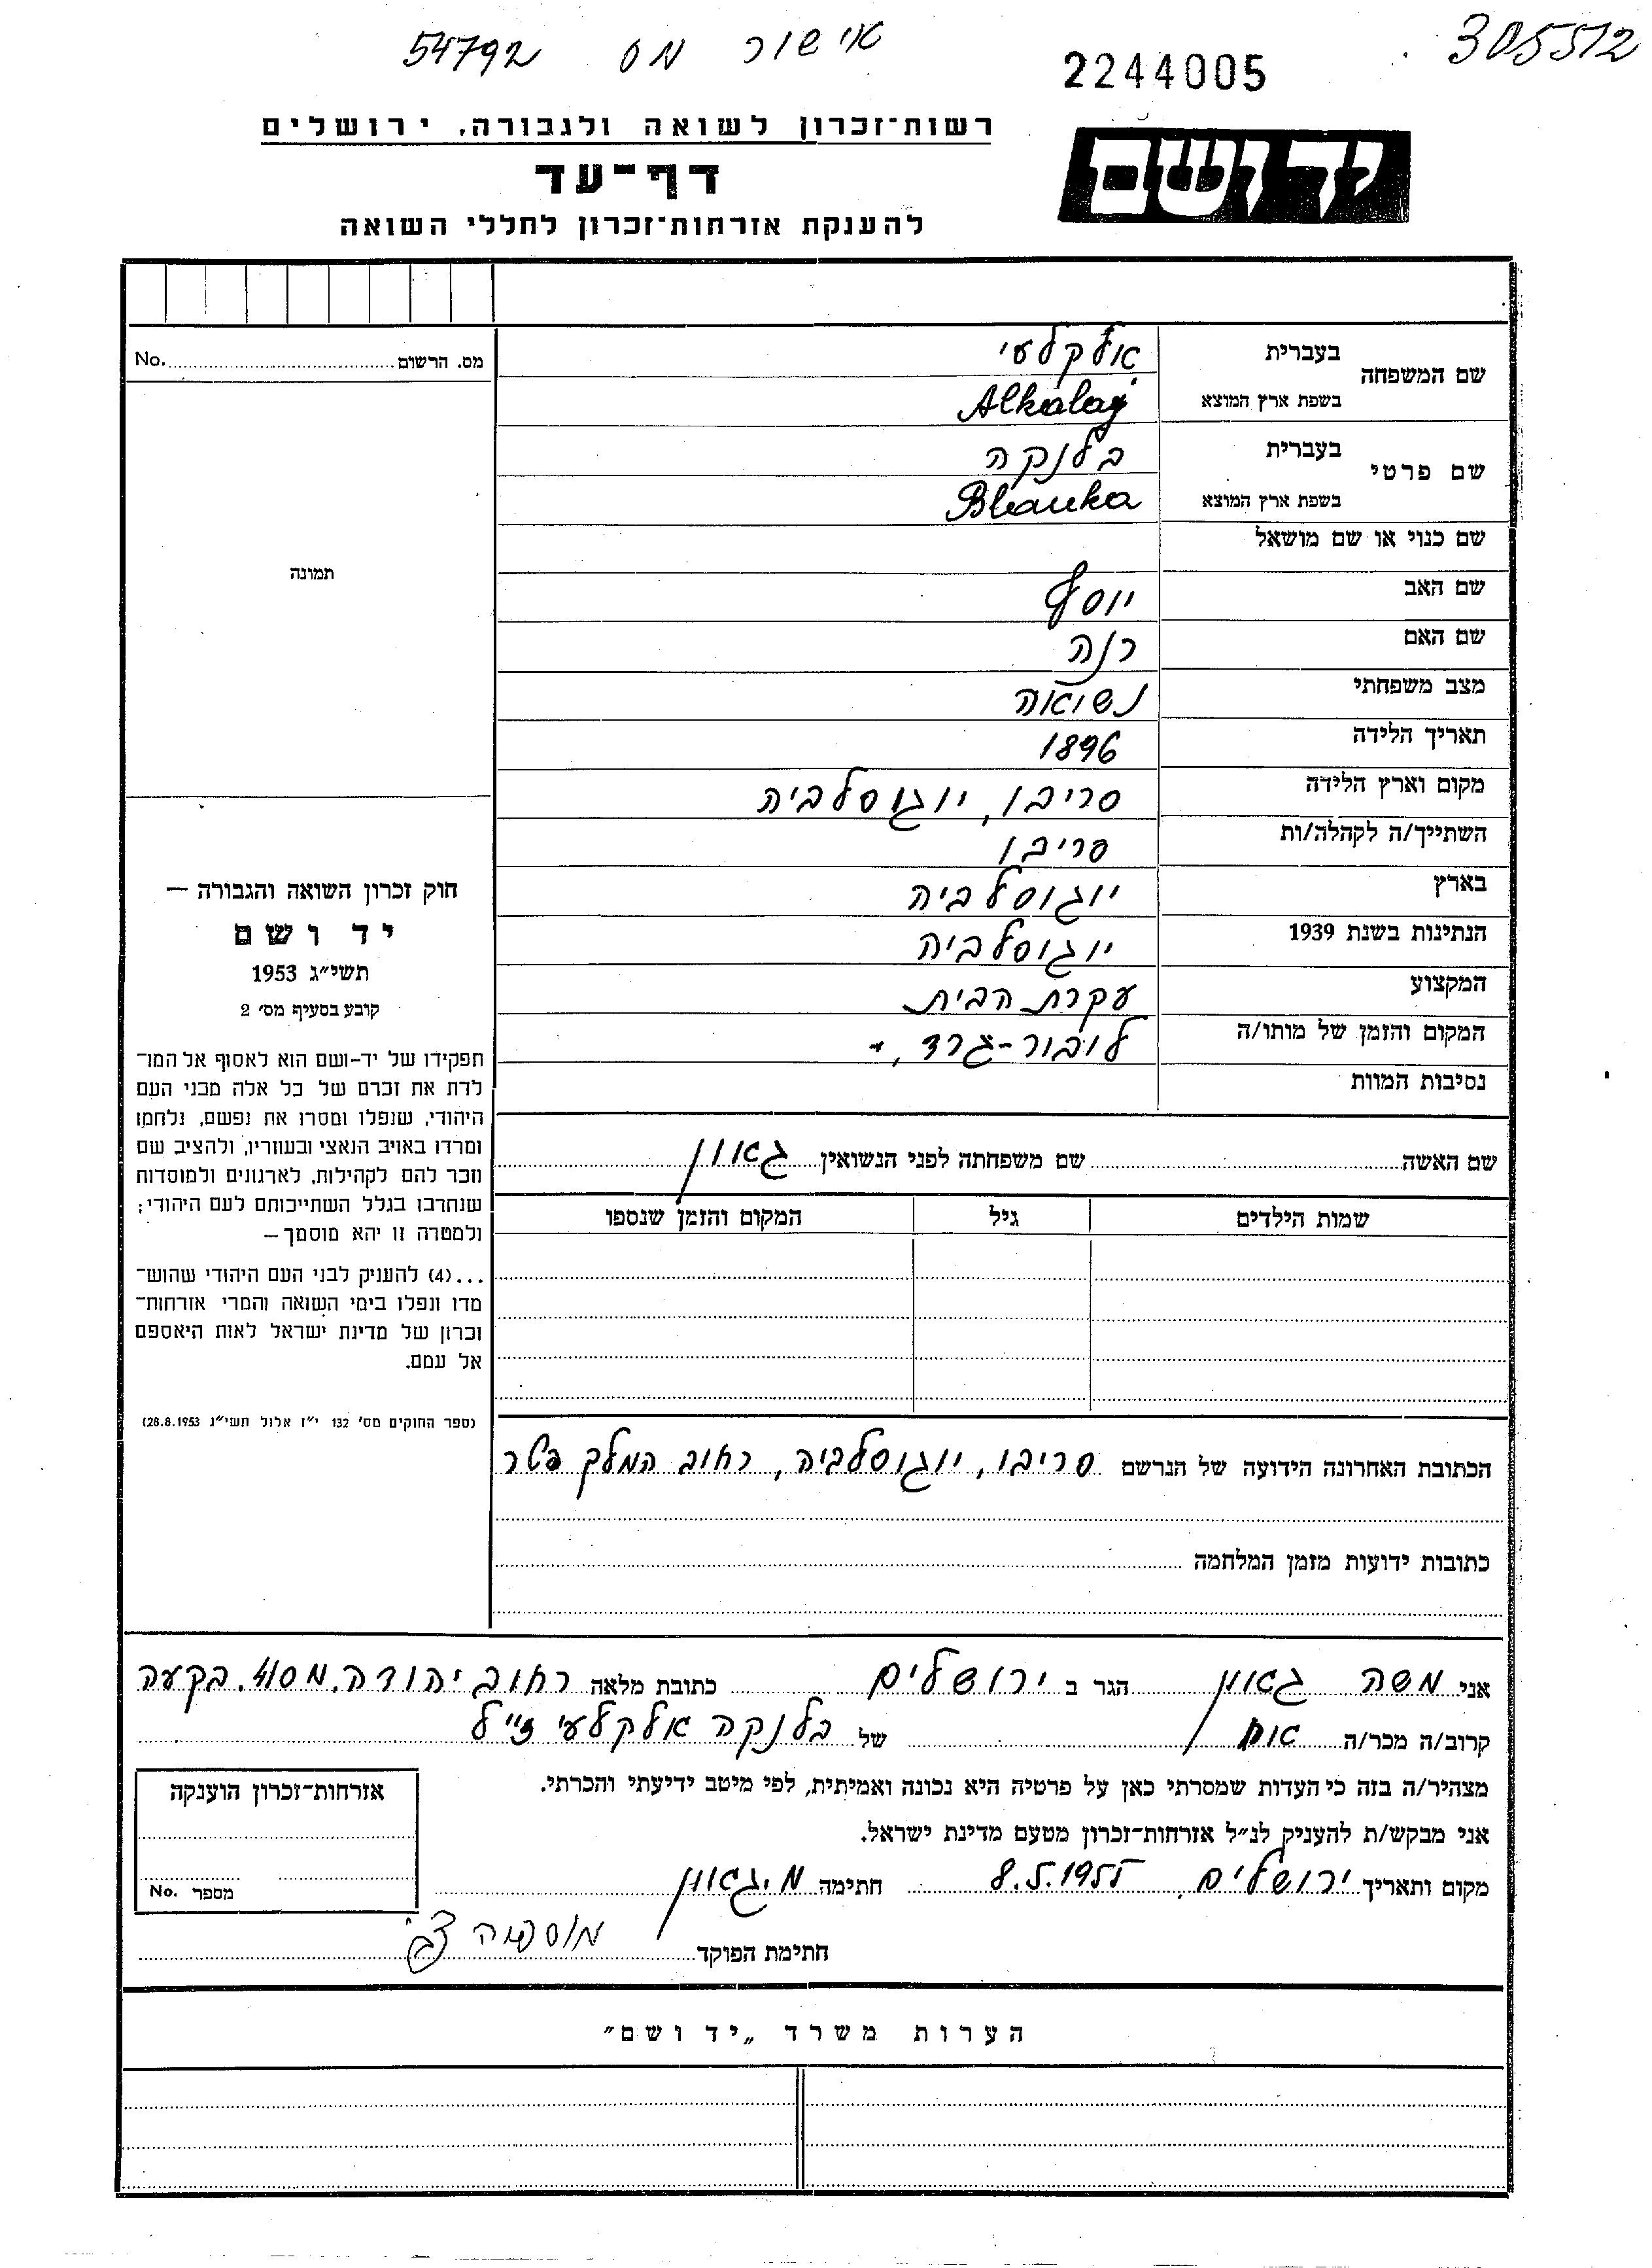 305512
אישור מס 54792
2244005
רשות־זכרון לשואה ולגבורה, ירושלים
יד ושם
דף־עד
להענקת אזרחות־זכרון לחללי השואה
מס. הרשום No.
שם המשפחה
בעברית אלקלעי
בשפת ארץ המוצא Alkalaj
שם פרטי
בעברית בלנקה
בשפת ארץ המוצא Blanka
שם כנוי או שם מושאל
שם האב יוסף
שם האם רנה
מצב משפחתי נשואה
תאריך הלידה 1896
מקום וארץ הלידה סריבו, יוגוסלביה
השתייך/ה לקהלה/ות סריבו
בארץ יוגוסלביה
הנתינות בשנת 1939 יוגוסלביה
המקצוע עקרת הבית
המקום והזמן של מותו/ה לובור-גרד,
נסיבות המוות
תמונה
חוק זכרון השואה והגבורה —
יד ושם
תשי״ג 1953
קובע בסעיף מס׳ 2
תפקידו של יד-ושם הוא לאסוף אל המו־
לדת את זכרם של כל אלה מבני העם
היהודי, שנפלו ומסרו את נפשם, נלחמו
ומרדו באויב הנאצי ובעוזריו, ולהציב שם
וזכר להם לקהילות, לארגונים ולמוסדות
שנחרבו בגלל השתייכותם לעם היהודי;
ולמטרה זו יהא מוסמך—
...(4) להעניק לבני העם היהודי שהוש־
מדו ונפלו בימי השואה והמרי אזרחות־
זכרון של מדינת ישראל לאות היאספם
אל עמם.
(ספר החוקים מס׳ 132 י״ז אלול תשי״ג 28.8.1953)
שם האשה שם משפחתה לפני הנשואין גאון
שמות הילדים גיל המקום והזמן שנספו
הכתובת האחרונה הידועה של הנרשם סריבו, יוגוסלביה, רחוב המלך פטר
כתובות ידועות מזמן המלחמה
אני משה גאון הגר ב ירושלים כתובת מלאה רחוב יהודה. מס 41. בקעה
קרוב/ה מכר/ה אח של בלנקה אלקלעי ז״ל
מצהיר/ה בזה כי העדות שמסרתי כאן על פרטיה היא נכונה ואמיתית, לפי מיטב ידיעתי והכרתי.
אני מבקש/ת להעניק לנ״ל אזרחות־זכרון מטעם מדינת ישראל.
מקום ותאריך ירושלים, 8.5.1955 חתימה מ. גאון
חתימת הפוקד
אזרחות־זכרון הוענקה
מספר No.
הערות משרד „יד ושם״